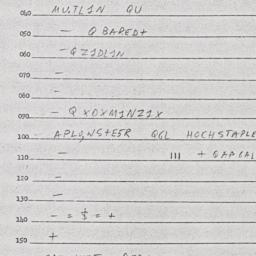 040 MU.TL1N QU
050 — Q BAPED+
060 -QZ1DL1N
070 —
080 —
090 — QXOXM1NZ1X
100 APLQNS+E5R QGL HOCHSTAPLE
110 — III + GAPGAL
120 —
130 —
140 - = $ = +
150 +